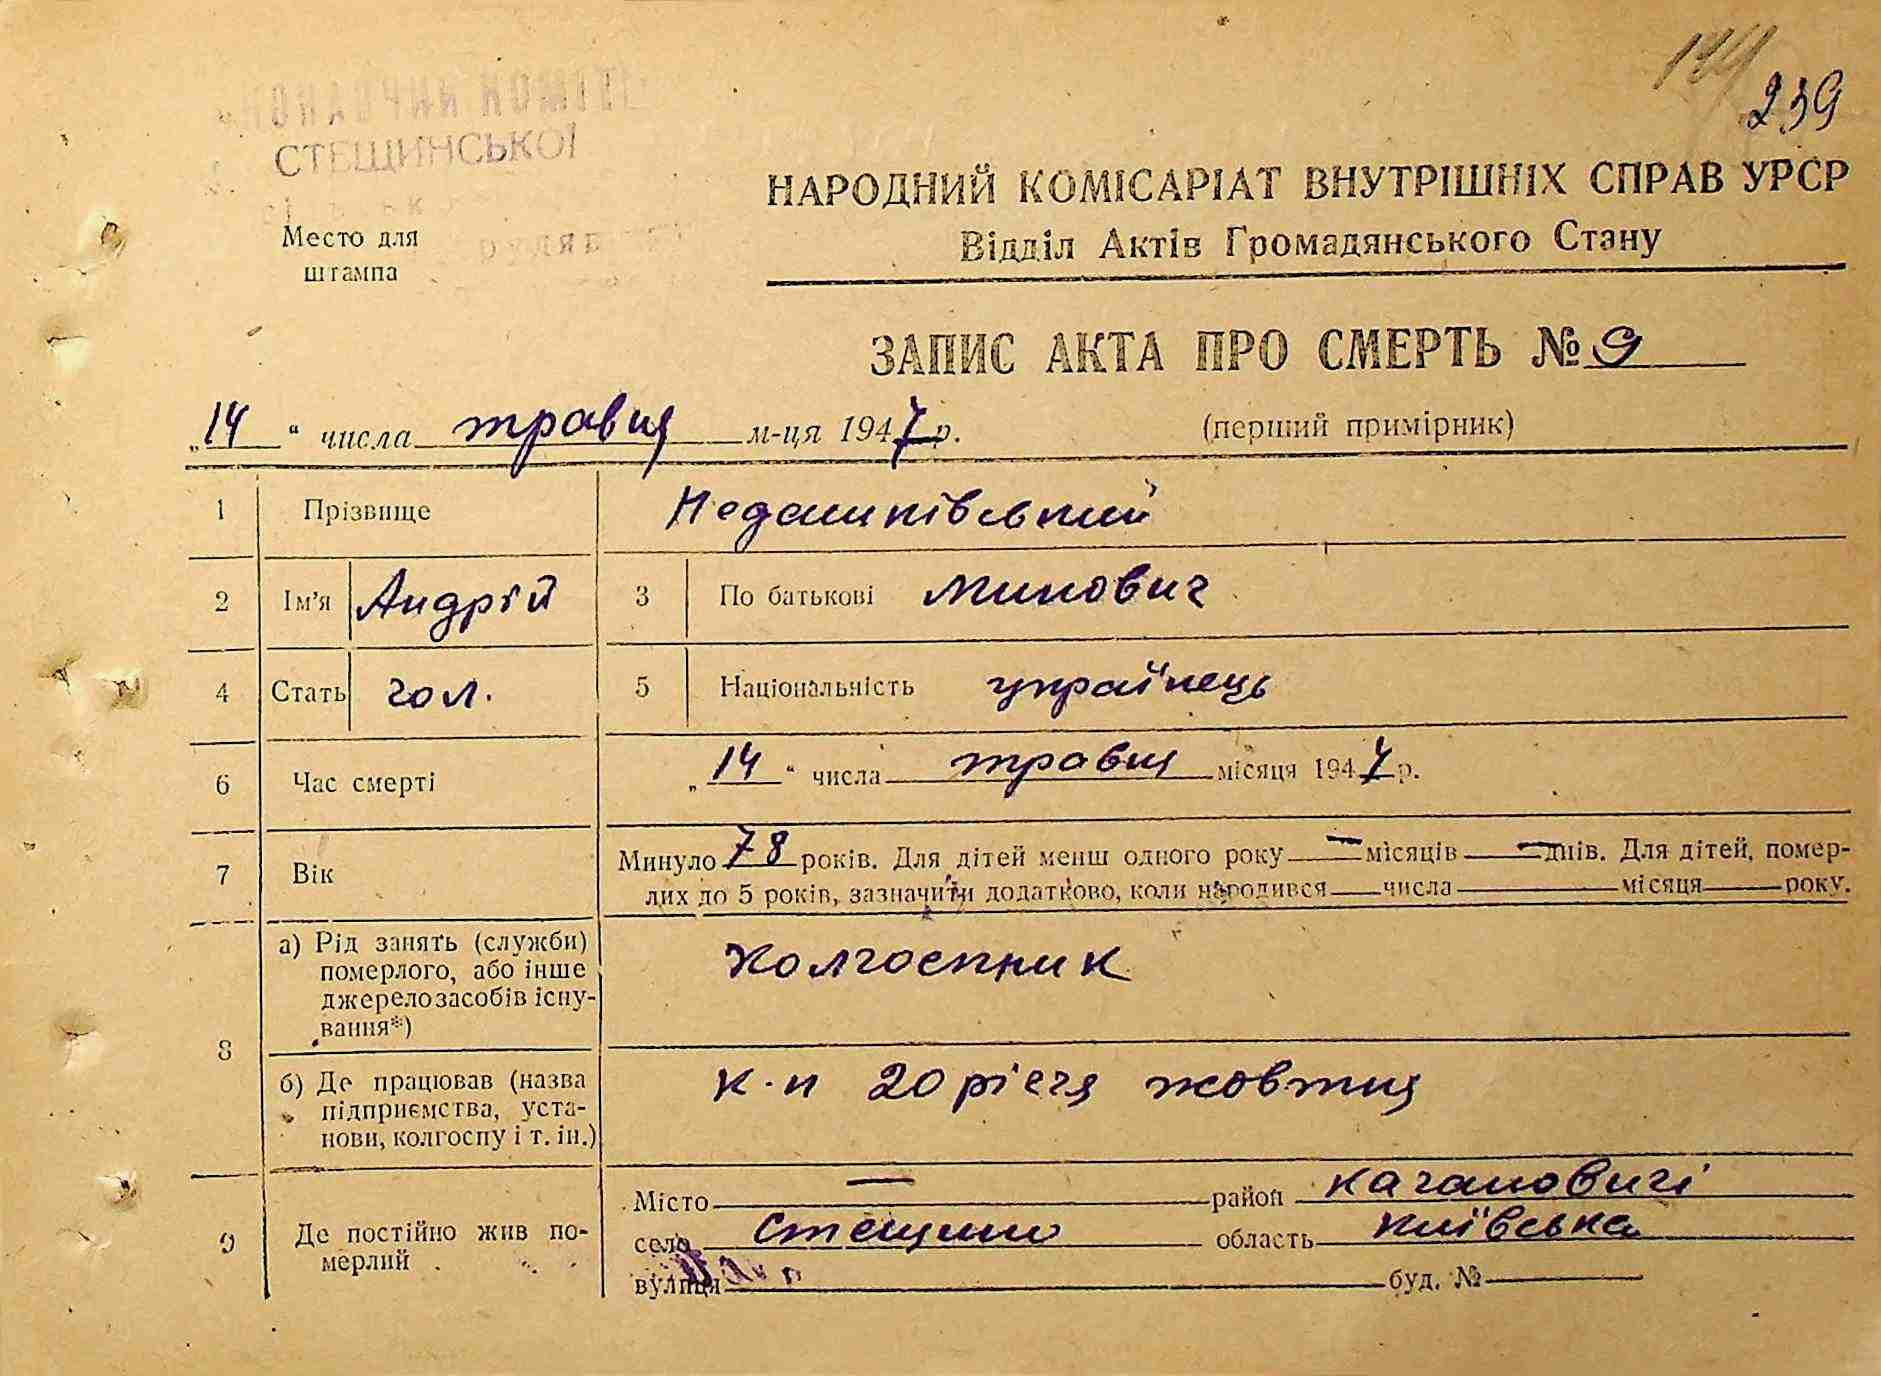 239
СТЕЩИНСЬКОЇ
НАРОДНИЙ КОМІСАРІАТ ВНУТРІШНІХ СПРАВ УРСР
Відділ Актів Громадянського Стану
Место для
штампа
ЗАПИС АКТА ПРО СМЕРТЬ № 9
„14“ числа травня м-ця 1947 р.
(перший примірник)
1 Прізвище Недашківський
2 Ім'я Андрій 3 По батькові Минович
4 Стать чол. 5 Національність українець
6 Час смерті „14“ числа травня місяця 1947 р.
7 Вік Минуло 78 років. Для дітей менш одного року — місяців — днів. Для дітей, помер-
лих до 5 років, зазначити додатково, коли народився числа місяця року.
8 а) Рід занять (служби)
померлого, або інше
джерело засобів існу-
вання*)
Колгоспник
б) Де працював (назва
підприємства, уста-
нови, колгоспу і т. ін.)
к-п 20 річчя жовтня
9 Де постійно жив по-
мерлий
Місто — район Кагановичі
село Стещино область Київська
вулиця буд. №